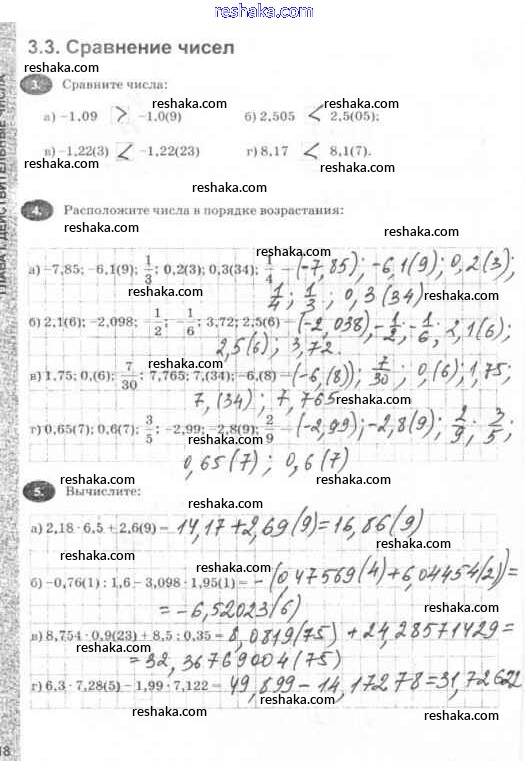 reshaka.com
3.3. Сравнение чисел
reshaka.com
3. Сравните числа:
reshaka.com
reshaka.com
а) −1,09 > −1,0(9) б) 2,505 < 2,5(05);
reshaka.com
в) −1,22(3) < −1,22(23) г) 8,17 < 8,1(7).
reshaka.com
reshaka.com
reshaka.com
4. Расположите числа в порядке возрастания:
reshaka.com
reshaka.com
reshaka.com
а) −7,85; −6,1(9); 1/3; 0,2(3); 0,3(34); 1/4 − (−7,85); −6,1(9); 0,2(3);
reshaka.com
1/4; 1/3; 0,3(34)
reshaka.com
б) 2,1(6); −2,098; −1/2; −1/6; 3,72; 2,5(6) − (−2,038), −1/2; −1/6; 2,1(6);
2,5(6); 3,72.
reshaka.com
reshaka.com
в) 1,75; 0,(6); 7/30; 7,765; 7,(34); −6,(8) − (−6,(8)); 7/30; 0,(6); 1,75;
7,(34); 7,765
reshaka.com
г) 0,65(7); 0,6(7); 3/5; −2,99; −2,8(9); 2/9 − (−2,99); −2,8(9); 2/9; 3/5;
reshaka.com
0,65(7); 0,6(7)
reshaka.com
reshaka.com
5. Вычислите:
reshaka.com
а) 2,18 · 6,5 + 2,6(9) = 14,17 + 2,69(9) = 16,86(9)
reshaka.com
reshaka.com
б) −0,76(1) : 1,6 − 3,098 · 1,95(1) = −(0,47569(4) + 6,04454(2)) =
= −6,52023(6)
reshaka.com
reshaka.com
в) 8,754 · 0,9(23) + 8,5 : 0,35 = 8,0819(75) + 24,28571429 =
reshaka.com
= 32,36769004(75)
reshaka.com
г) 6,3 · 7,28(5) − 1,99 · 7,122 = 49,899 − 14,17278 = 31,72622
reshaka.com
reshaka.com
reshaka.com
18
ГЛАВА I. ДЕЙСТВИТЕЛЬНЫЕ ЧИСЛА